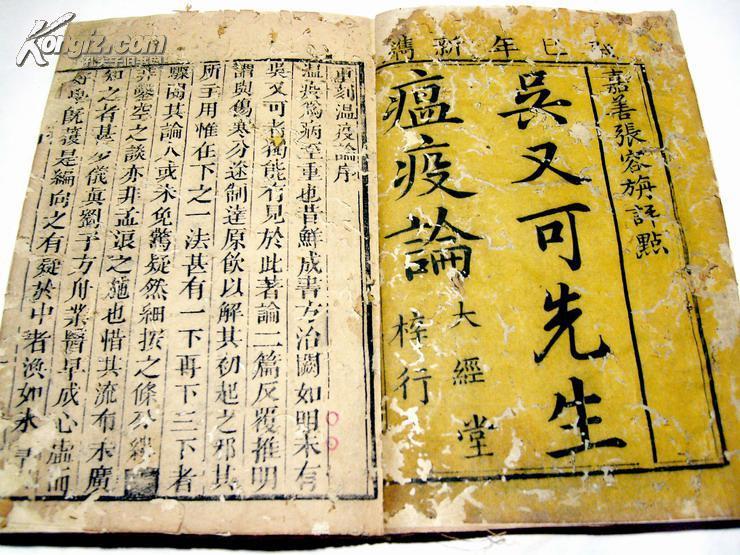 年新鐫
嘉善張容旃註點
吳又可先生
瘟疫論
大經堂
梓行
刻温疫論序
温疫爲病至重也昔鮮成書方治闕如明末有
吳又可者獨能有見於此著論二篇反覆推明
謂與傷寒分途制達原飲以解其初起之邪其
所主用惟在下之一法甚有一下再下三下者
驟閱其論人或未免驚疑然細按之條分縷
非鑿空之談亦非孟浪之施也惜其流布未廣
知之者甚少儀眞劉子方舟業醫早成心虛而
好學旣獲是編向之有疑於中者渙如氷
Kongfz.com
孔夫子旧书网